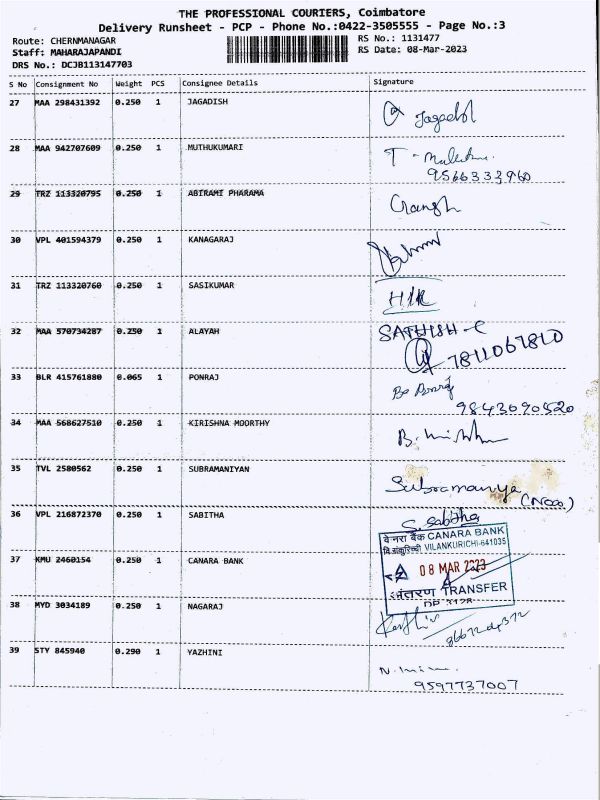 THE PROFESSIONAL COURIERS, Coimbatore
Delivery Runsheet - PCP - Phone No.:0422-3505555 - Page No.:3
Route: CHERNMANAGAR
RS No.: 1131477
Staff: MAHARAJAPANDI
RS Date: 08-Mar-2023
DRS No.: DCJB113147703
S No Consignment No Weight PCS Consignee Details Signature
27 MAA 298431392 0.250 1 JAGADISH
28 MAA 942707609 0.250 1 MUTHUKUMARI
9566333960
29 TRZ 113320795 0.250 1 ABIRAMI PHARAMA
30 VPL 401594379 0.250 1 KANAGARAJ
31 TRZ 113320760 0.250 1 SASIKUMAR
32 MAA 570734287 0.250 1 ALAYAH SATHISH-C
7811067810
33 BLR 415761880 0.065 1 PONRAJ
9843090520
34 MAA 568627510 0.250 1 KIRISHNA MOORTHY
35 TVL 2580562 0.250 1 SUBRAMANIYAN Subramaniya
36 VPL 216872370 0.250 1 SABITHA S. Sabitha
CANARA BANK
VILANKURICHI-641035
37 KMU 2460154 0.250 1 CANARA BANK
08 MAR 2023
अंतरण TRANSFER
38 MYD 3034189 0.250 1 NAGARAJ
39 STY 845940 0.290 1 YAZHINI
9597737007